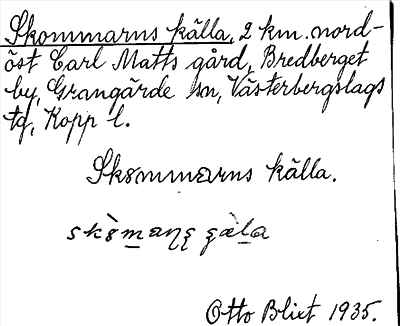 Skommarns källa, 2 km. nord-
öst Carl Matts gård, Bredberget
by, Grangärde sn, Västerbergslags
tg, Kopp l.
Skommarns källa.
Otto Blixt 1935.